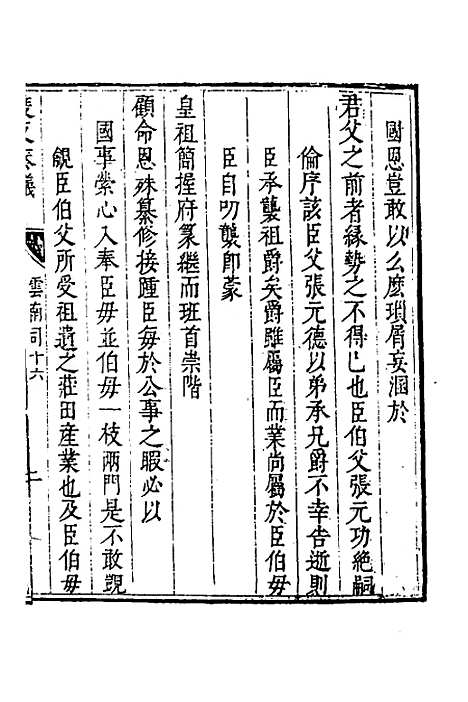 國恩豈敢以么麼瑣屑妄溷於
君父之前者緣勢之不得已也臣伯父張元功絶嗣
倫序該臣父張元德以弟承兄爵不幸告逝則
臣承襲祖爵矣爵雖屬臣而業尚屬於臣伯毋
臣自叨襲卽蒙
皇祖簡握府篆繼而班首崇階
顧命恩殊纂修接踵臣每於公事之暇必以
國事縈心入奉臣毋並伯毋一枝兩門是不敢覬
覦臣伯父所受祖遺之莊田産業也及臣伯毋
雲南司十六
二